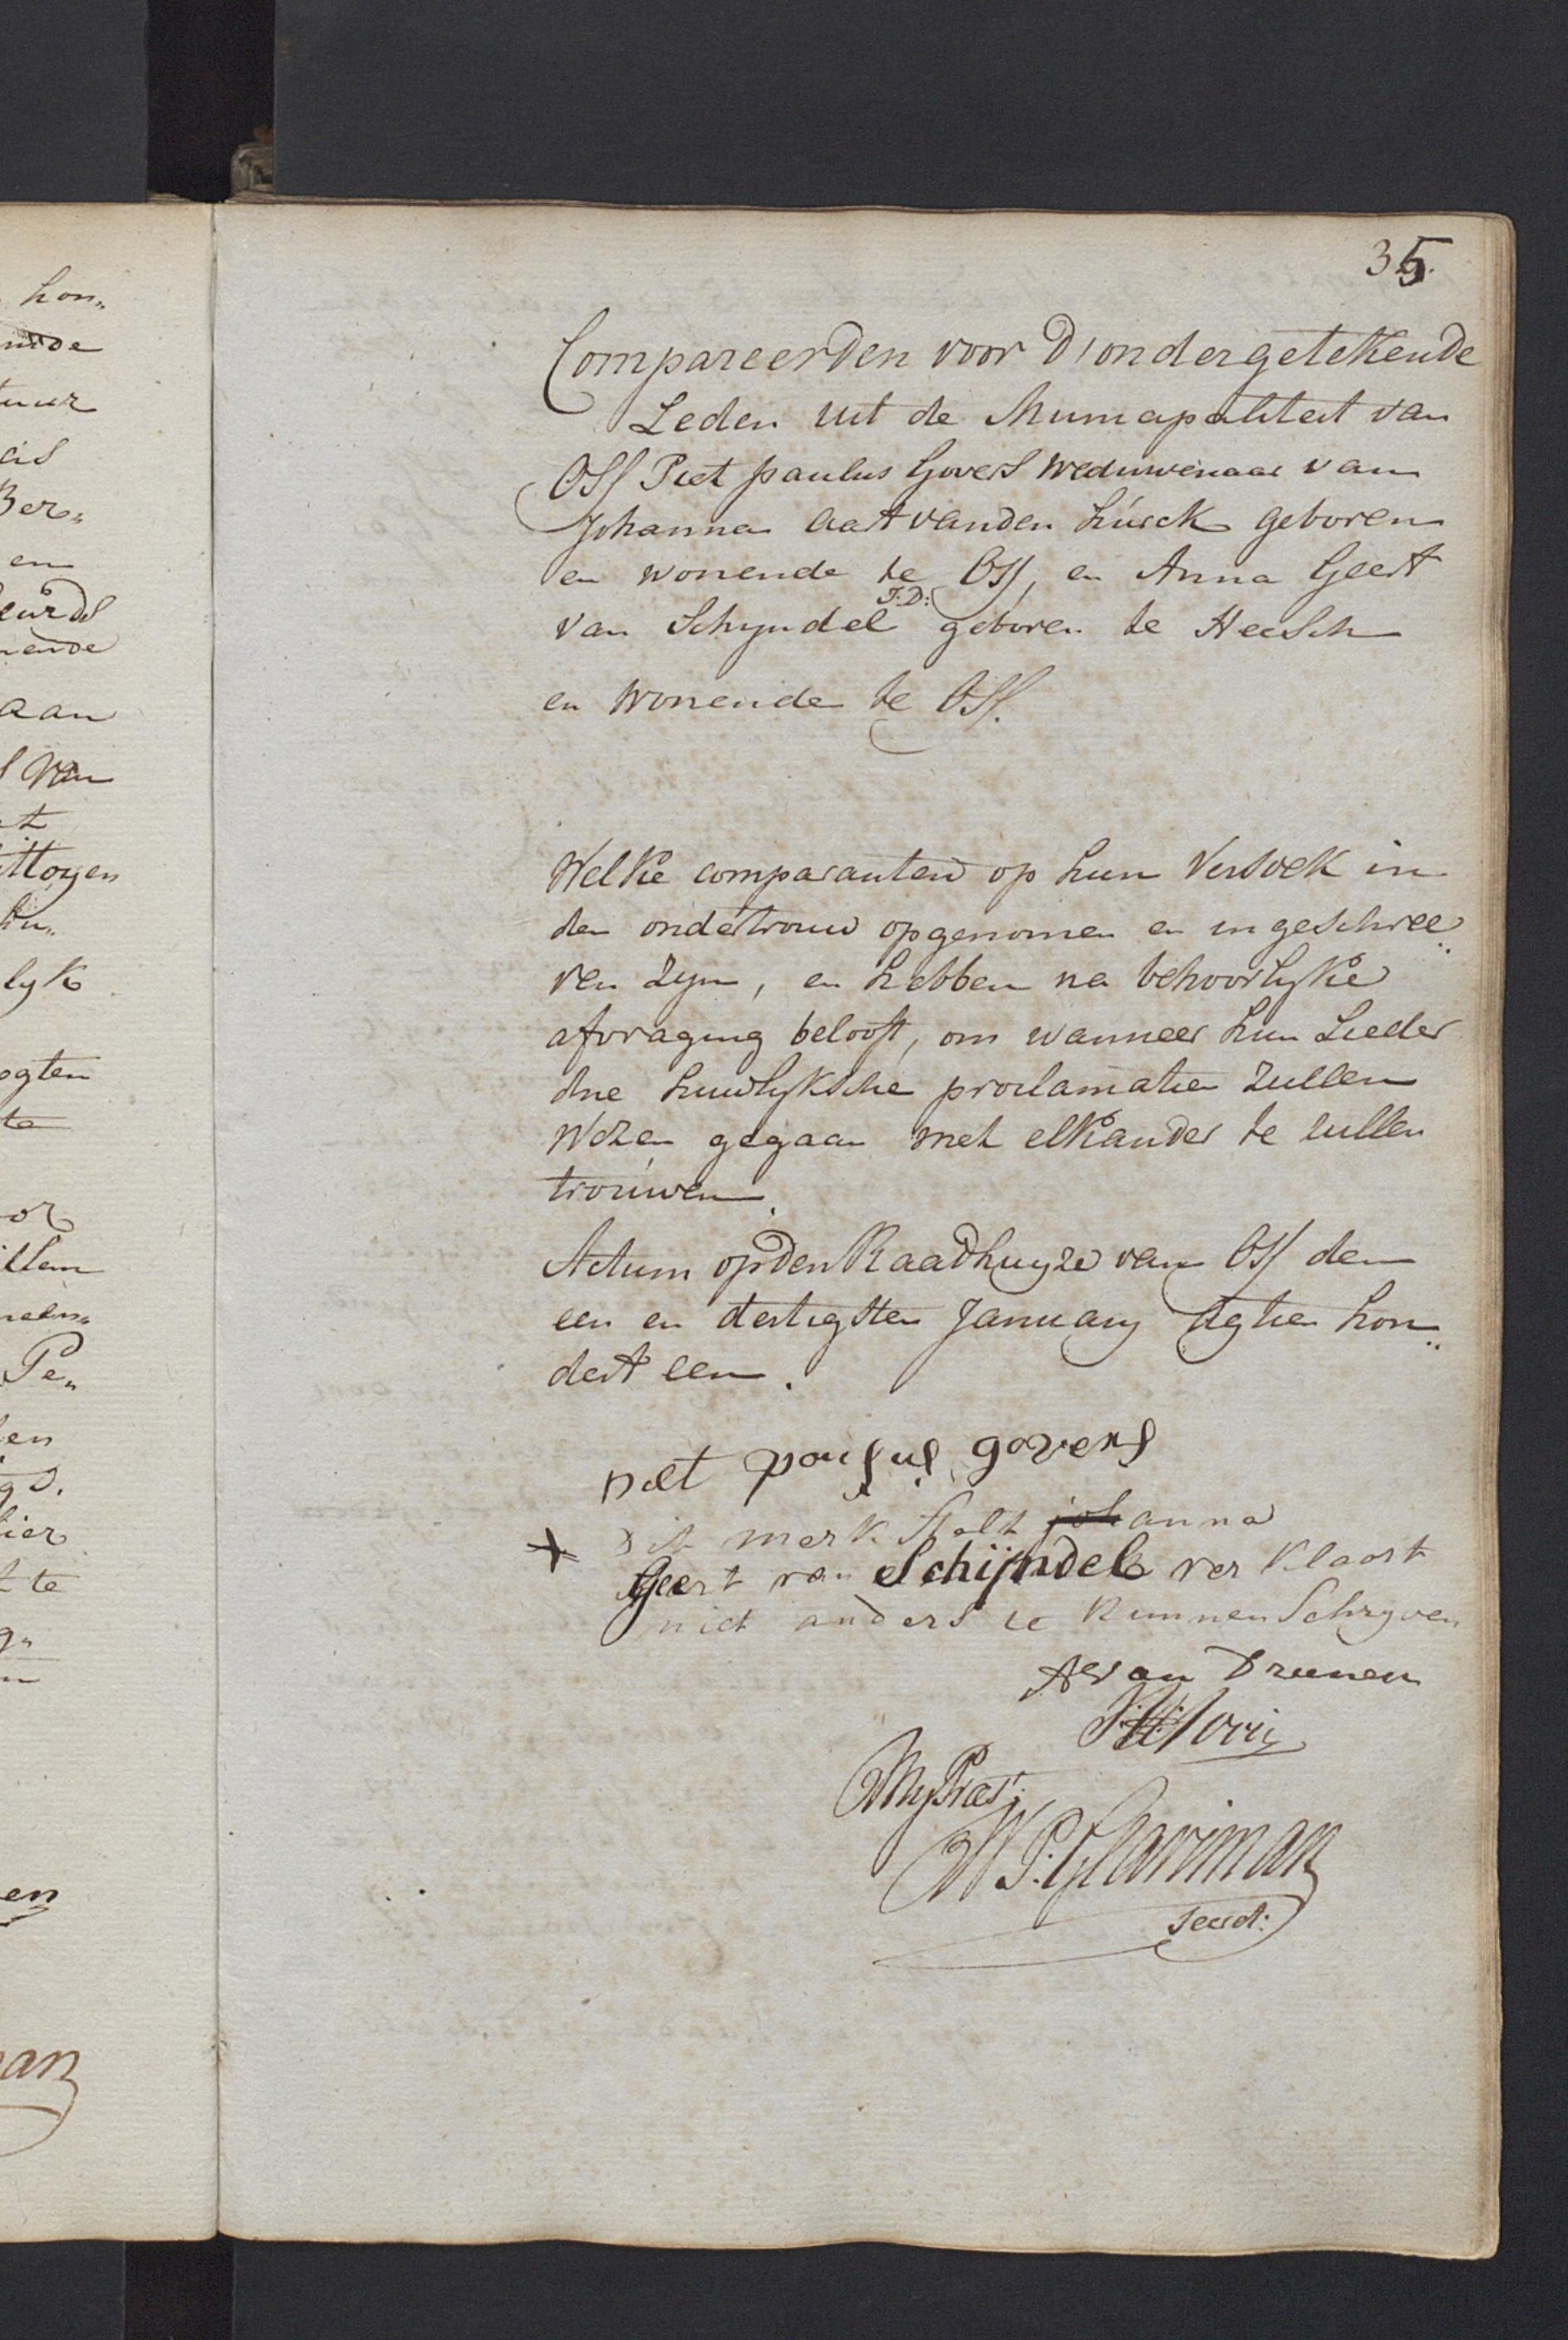 35.
Compareerden voor D'ondergetekende
Leden uit de Municipaliteit van
Oss Piet paulus Govers Weduwenaar van
Johanna Aart vanden hurck geboren
en wonende te Oss, en Anna Geert
J:D:
van Schyndel geboren te Heesch
en Wonende te Oss.
Welke comparanten op hun Versoek in
den ondertrouw opgenomen en ingeschree„
ven Zyn, en hebben na behoorlyke
afvraging belooft, om wanneer hun Lieder
drie huwlyksche proclamatien Zullen
Wezen gegaan met elkander te zullen
trouwen.
Actum opden Raadhuyze van Oss den
een en dertigsten January Agtien hon„
dert een.
piet paulus govers
dit merk stelt johanna
Geert van Schijndel ver Klaart
niet anders te Kunnen Schryven
van Drunen
My Pres:t
W P:
Secret:
hon„
aan
van
lyk
ogten
te
or
Pe„
en
gs.
hier
te
en